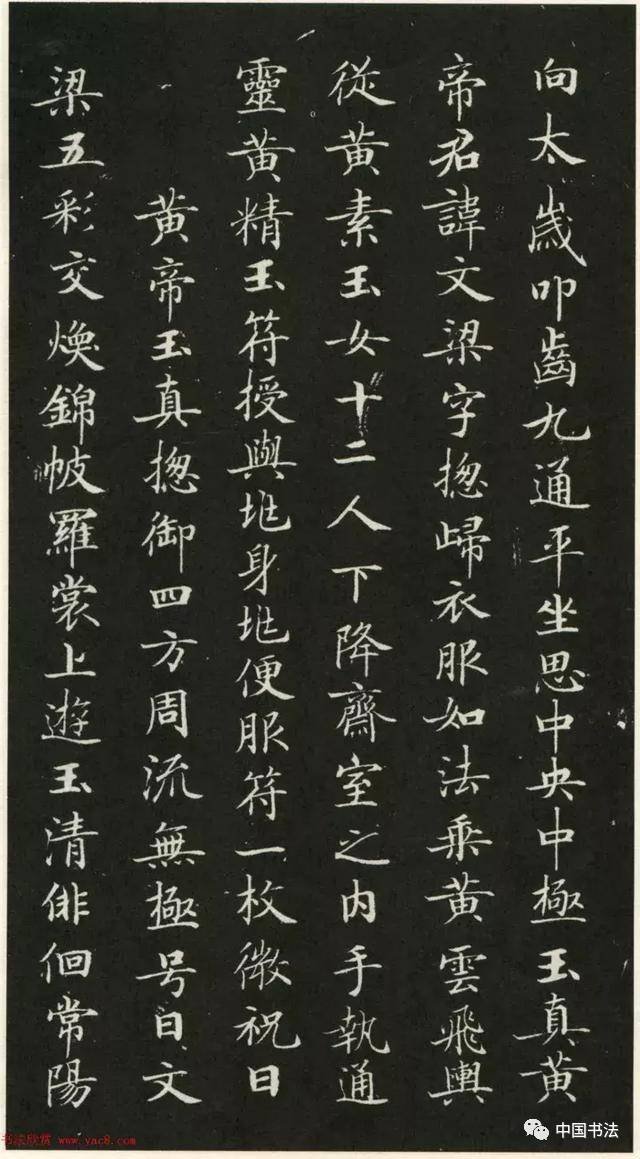 向太歲叩齒九通平坐思中央中極玉真黃
帝君諱文梁字揔歸衣服如法乘黃雲飛輿
從黃素玉女十二人下降齋室之内手執通
靈黃精玉符授與㘴身㘴便服符一枚微祝曰
黃帝玉真揔御四方周流無極号曰文
梁五彩交煥錦帔羅裳上遊玉清俳佪常陽
中国书法
书法欣赏 www.yac8.com